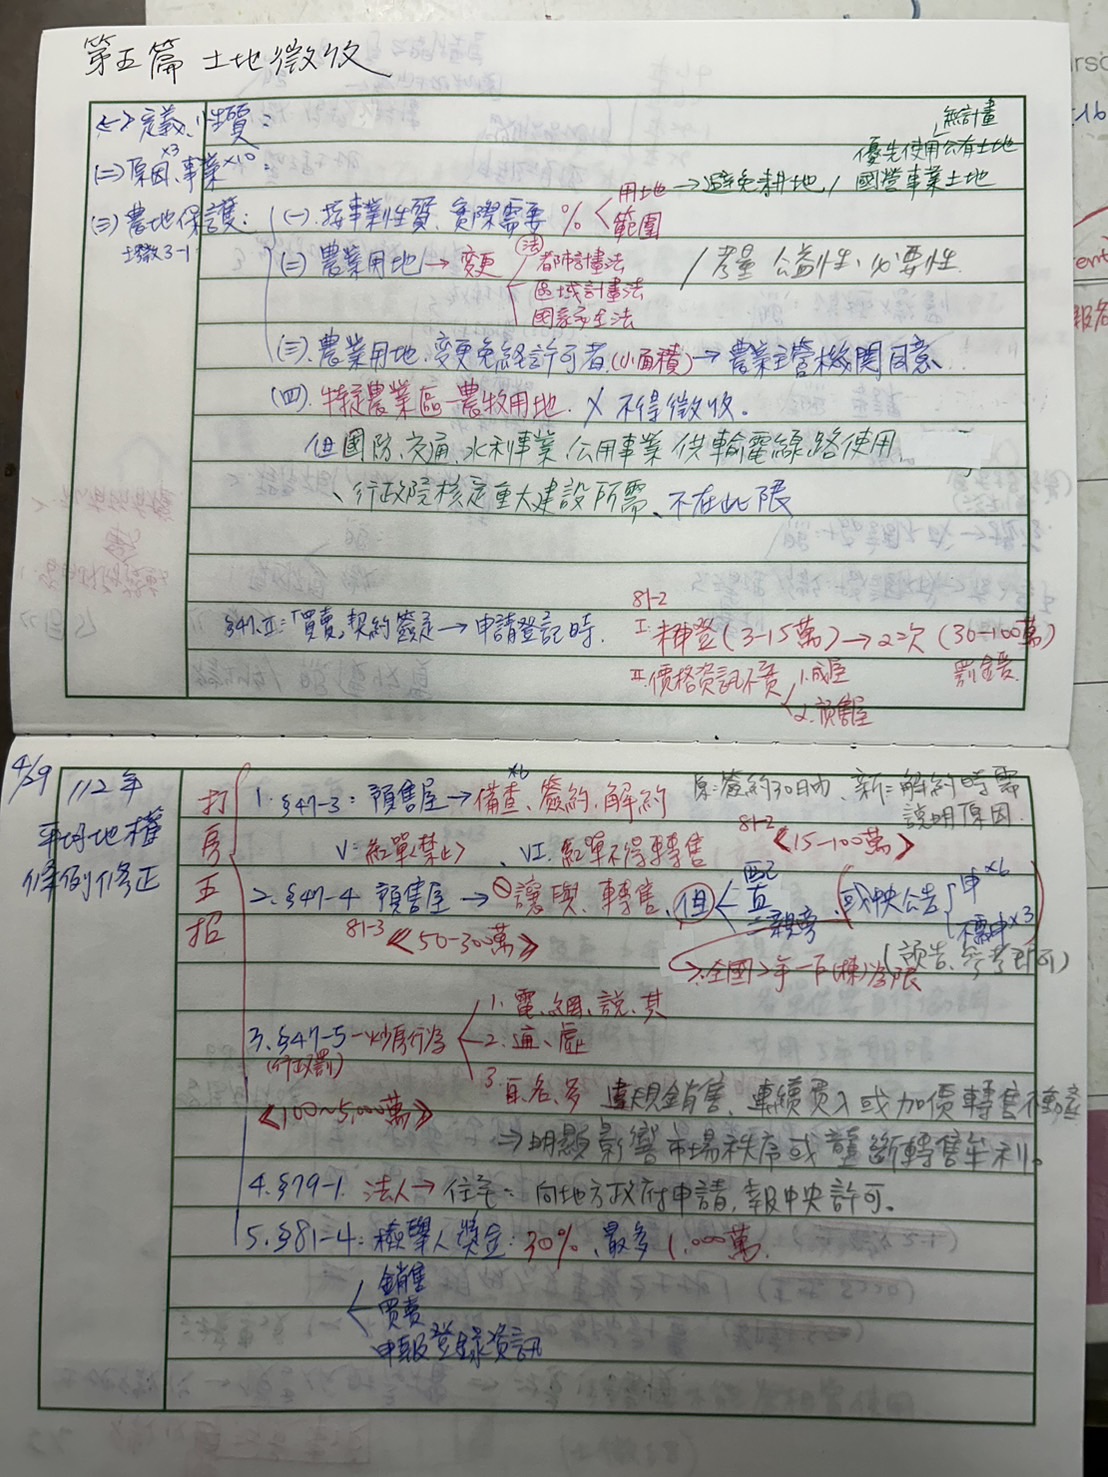 第五篇 土地徵收
(一)定義、性質:
(二)原因x3、事業x10:
無計畫
優先使用公有土地
國營事業土地
(三)農地保護:
土徵3-1:
(一).按事業性質、實際需要 % < 用地 → 避免耕地 /
範圍
(二)農業用地 → 變更 法 都市計畫法
區域計畫法
国家公園法
/ 考量 公益性、必要性.
(三).農業用地、變更免經許可者.(小面積) → 農業主管機關同意.
(四).特定農業區-農牧用地. X 不得徵收。
但國防、交通、水利事業、公用事業供輸電線路使用.
、行政院核定重大建設所需、不在此限
§47.II:「買賣」契約簽定 → 申請登記時.
81-2
I. 未申登(3-15萬) → 2次(30-100萬)
罰鍰.
II.價格資訊不實 < 1.成屋
2.預售屋
4/29 112年
平均地權
條例修正
打
房
五
招
1. §47-3: 預售屋 → 備查x6、簽約、解約
原:簽約30日內、新:解約時需
說明原因.
V:紅單<禁止>、VI.紅單不得轉售
81-2 《15-100萬》
2. §47-4 預售屋 → ⊖讓與、轉售、但 < 配
直
二親旁
、或中央公告 申x6
不需申x3
(預告、參考即可)
81-3《50-300萬》
→全國2年一戶(棟)為限
3. §47-5-炒房行為
(行政罰)
《100~5,000萬》
1. 電、網、說、其
2. 通、虛
3. 自、名、多 違規銷售、連續買入或加價轉售不動產
⇒明顯影響市場秩序或壟斷轉售牟利。
4. §79-1. 法人→住宅: 向地方政府申請,報中央許可。
5. §81-4: 檢舉人獎金: 30%、最多1,000萬.
銷售
買賣
申報登錄資訊